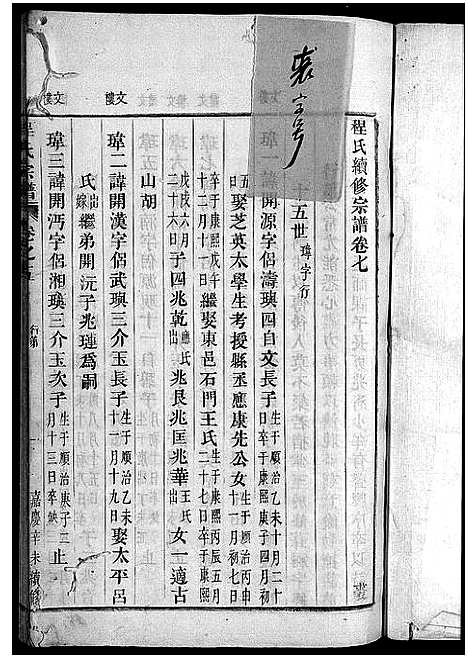 程氏續修宗譜卷七
十五世 瑋字行
瑋一諱開源字侶濤璵四自文長子生于順治乙未十月二十日卒于康熙庚子四月初
五日娶芝英太學生考授縣丞應康先公女生于順治丙申十一月初七日
卒于康熙戊午十二月十一日繼娶東邑石門王氏生于康熙丙辰五月二十七日卒于康熙
戊戌六月二十六日子四兆乾應氏出兆艮兆匡兆華王氏出女一適古
山胡
文樓
瑋二諱開漢字侶武璵三介玉長子生于順治乙未十一月十九日娶太平呂
氏出嫁繼弟開沅子兆璉為嗣
文樓
瑋三諱開沔字侶湘璵三介玉次子生于順治庚子二月十三日卒缺止
程氏宗譜
行第
一
嘉慶辛未續修